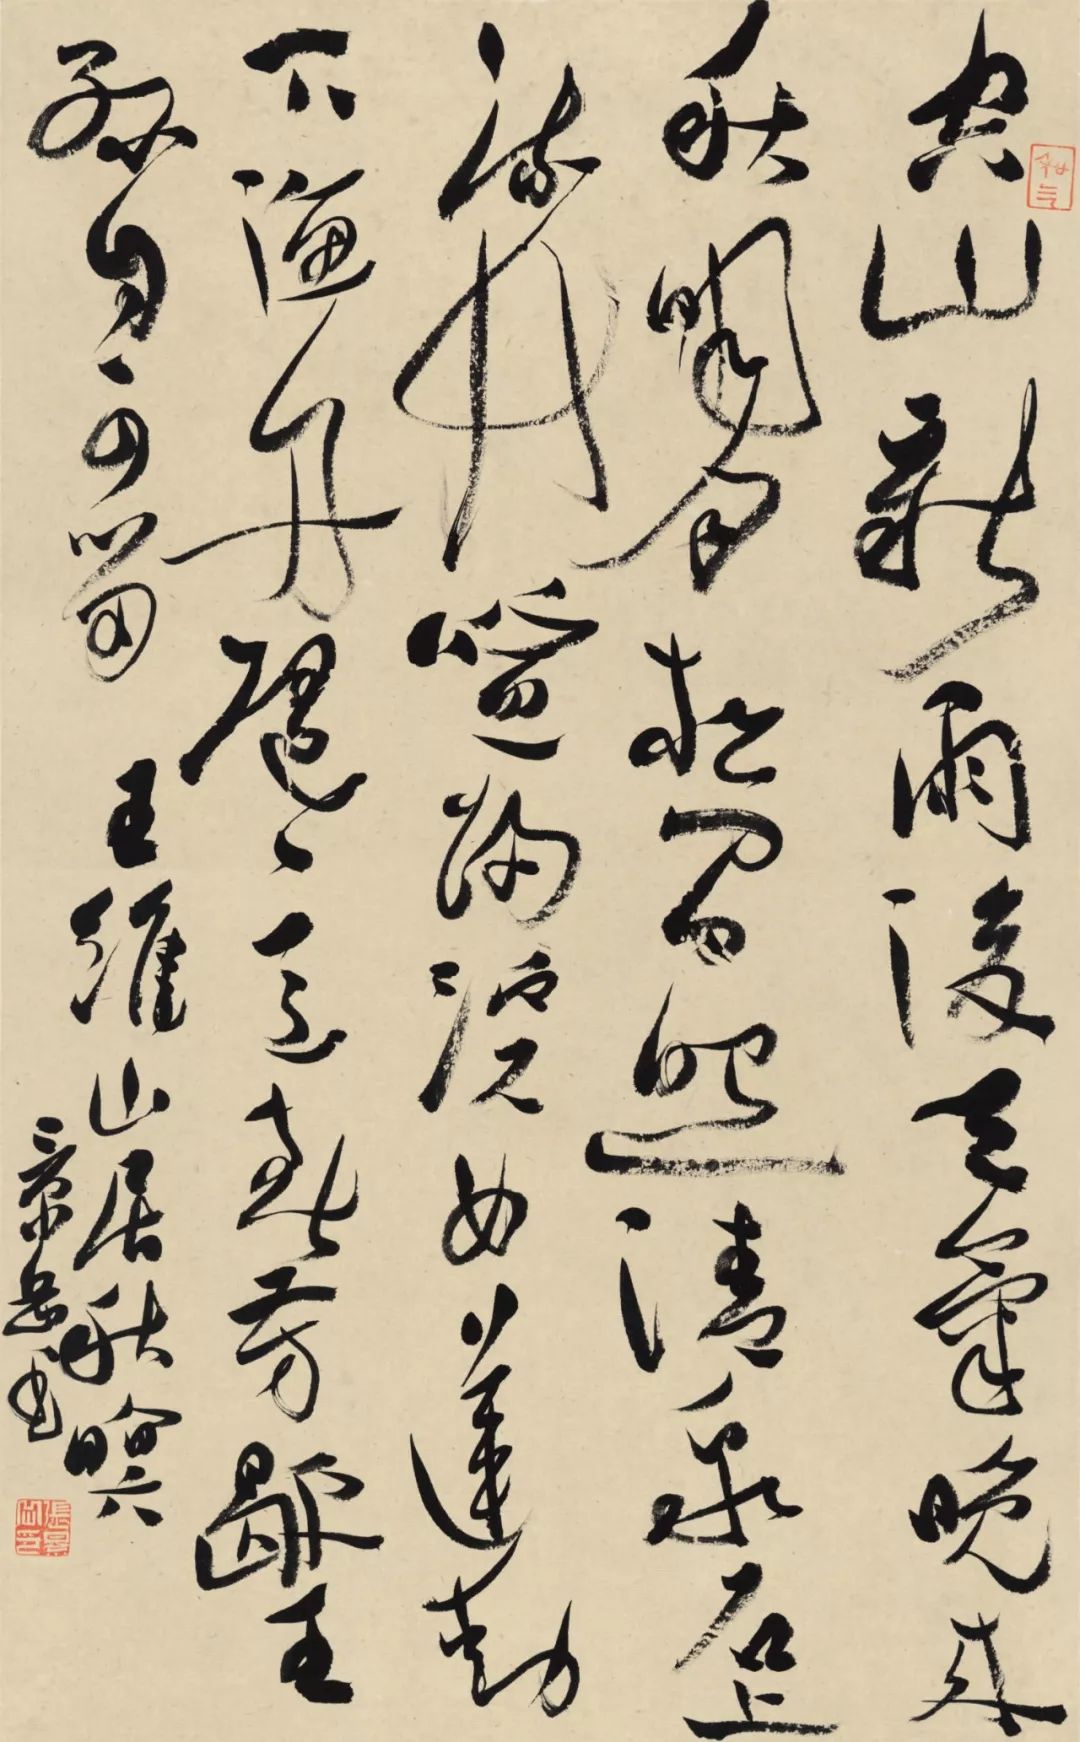 空山新雨後天氣晚來
秋明月松間照清泉石上
流竹喧歸浣女蓮動
下漁舟隨意春芳歇王
孫自可留 王維山居秋暝
景岳書